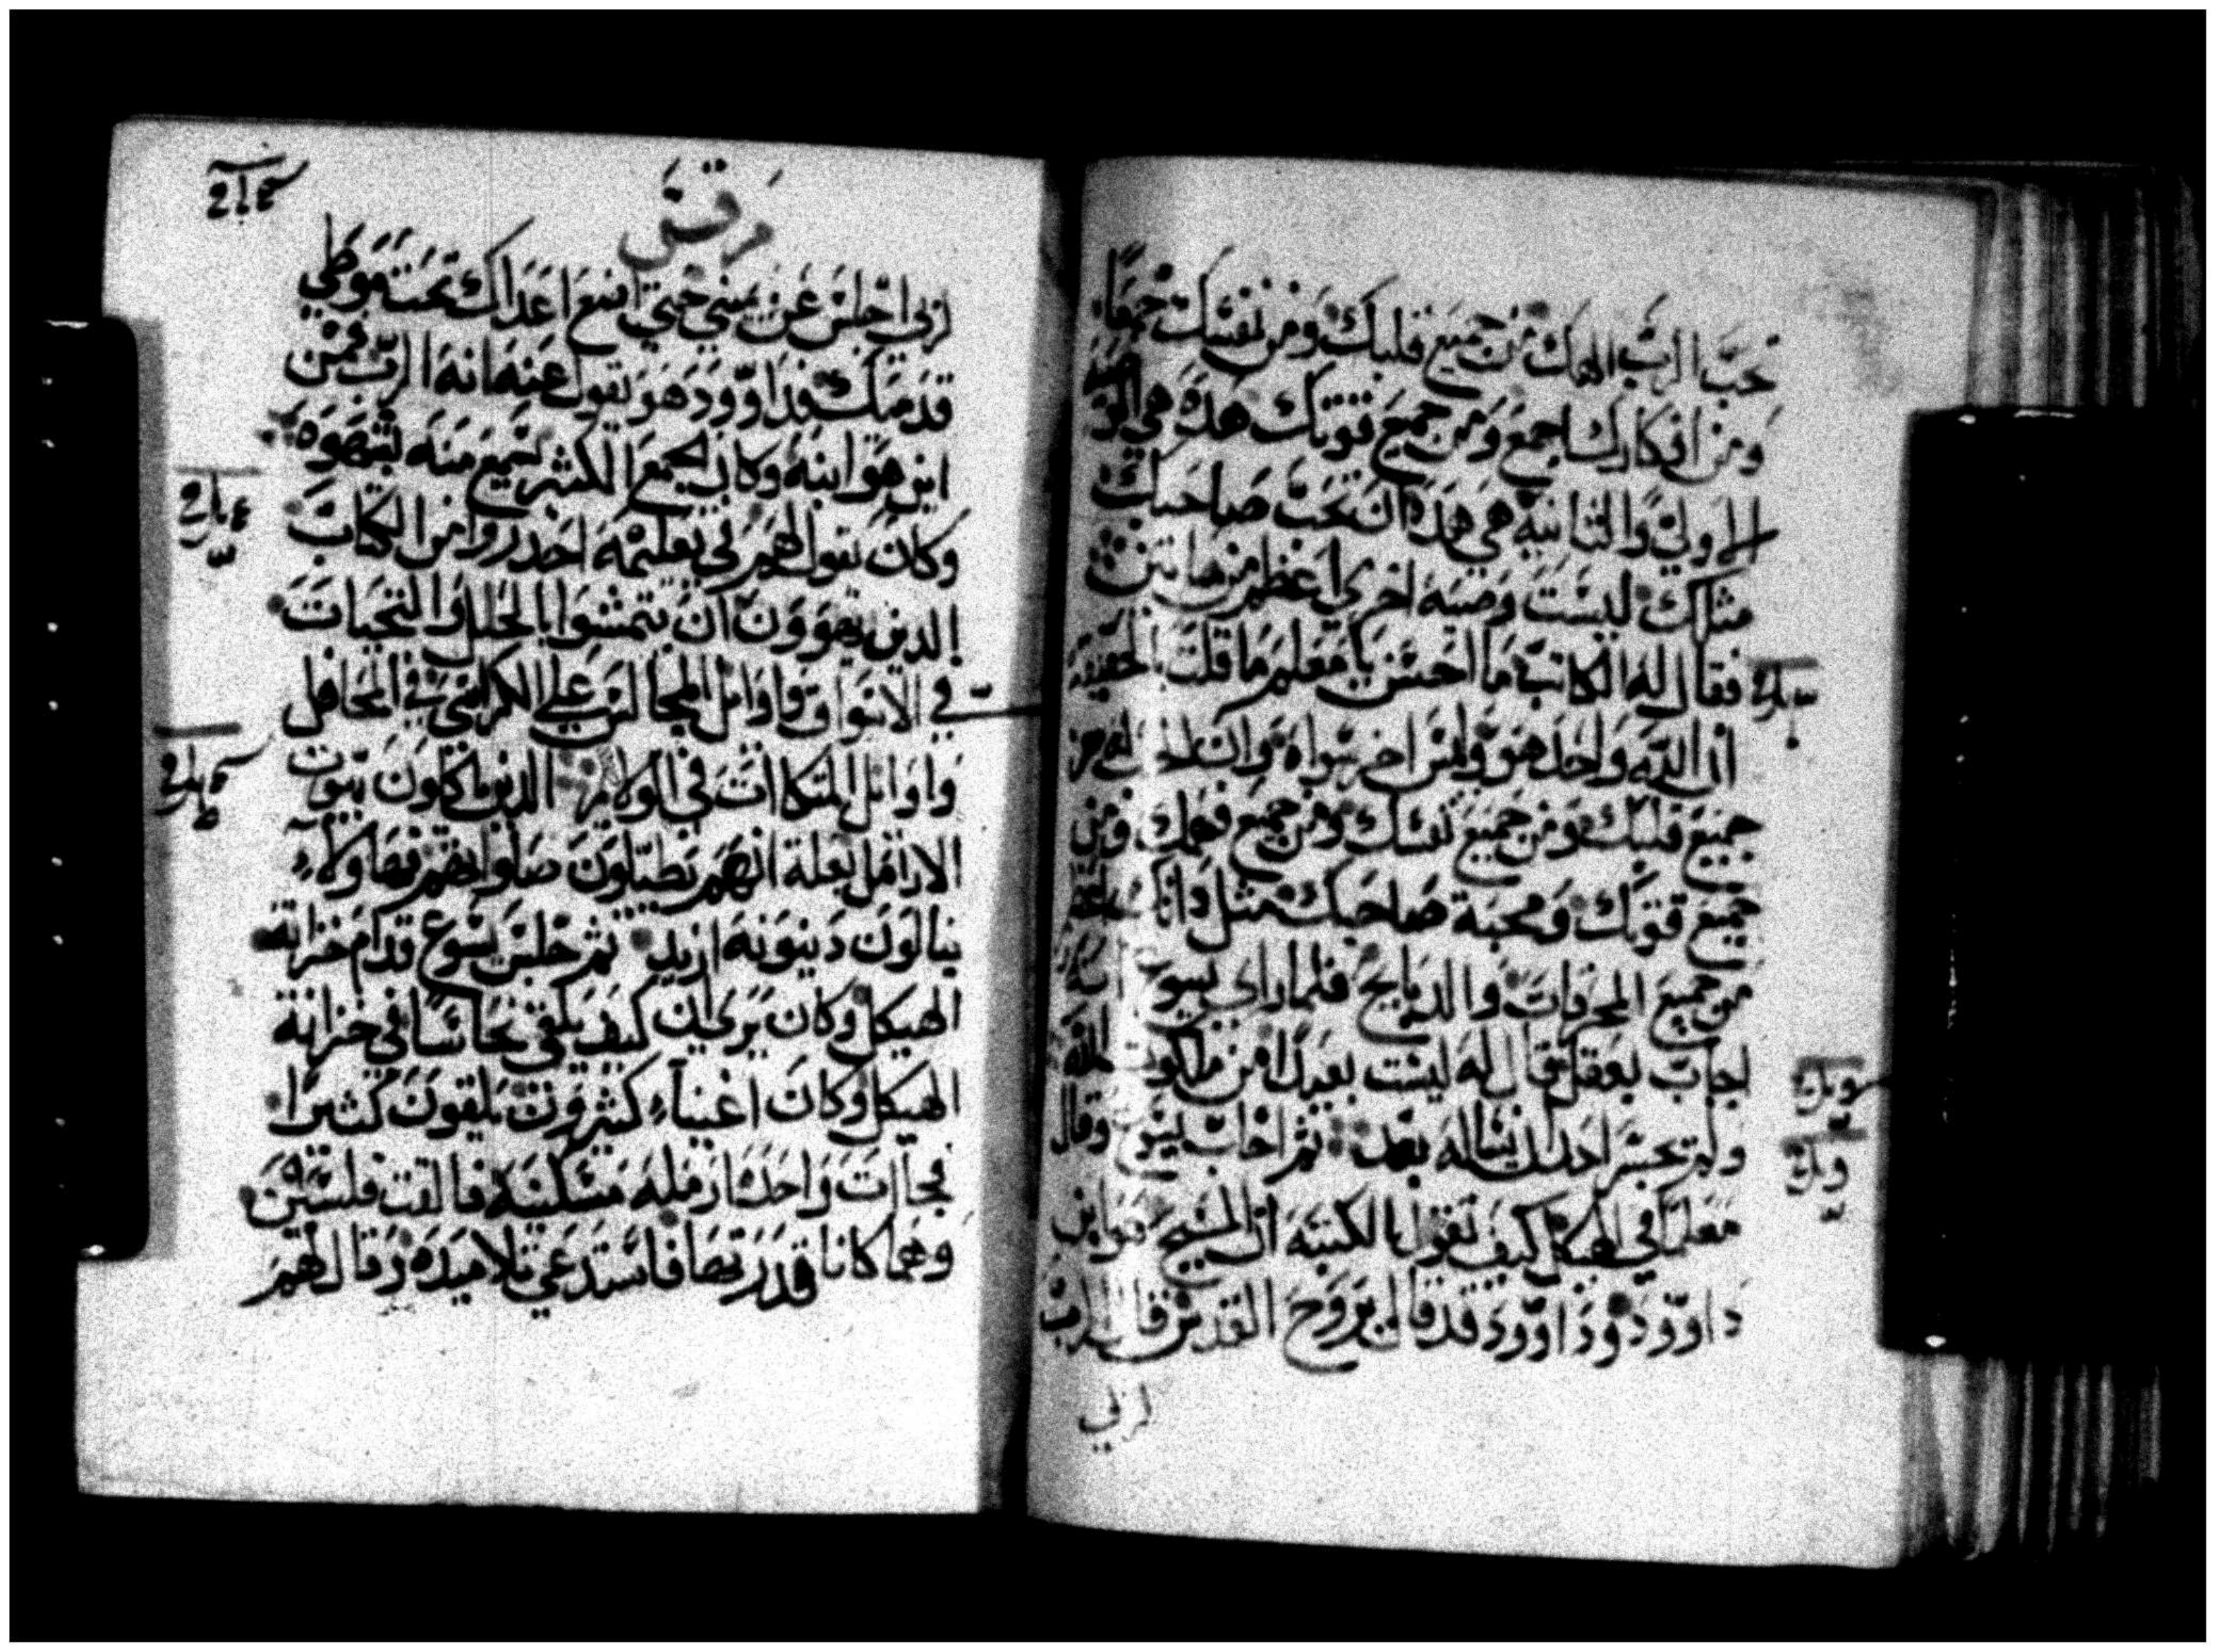 تحبّ الربّ الهك من جميع قلبك ومن نفسك جمعا
ومن افكارك اجمع ومن جميع قوتك هذه هي الوصية
الاولي والثانية هي هذه ان تحب صاحبك
مثلك ليست وصية اخري اعظم من هاتين
فقال له الكاتب ما احسن يا معلم ما قلت بالحقيقة
ان الله واحد هو وليس اخر سواه وان تحبه من
جميع قلبك ومن جميع نفسك ومن جميع فهمك ومن
جميع قوتك ومحبة صاحبك مثل ذاتك
من جميع المحرقات والذبايح فلما راي يسوع انه
اجاب بعقل قال له ليست بعيدا من ملكوت الله
ولم تجسر احد ان يساله بعد ثم اجاب يسوع وقال
معلما في الهيكل كيف تقول الكتبة ان المسيح هو ابن
داوود وداوود قد قال بروح القدس قال الرب
لربي
مرقس
لربي اجلس عن يميني حتي اضع اعداك تحت موطي
قدميك فداوود هو يقول عنه انه الربّ فمن
اين هو ابنه وكان الجمع الكثير يسمع منه بشهوه
وكان يقول لهم في تعليمه احذروا من الكتاب
الذين يهوون ان يتمشوا بالحلل والتحيات
في الاسواق واوايل المجالس علي الكراسي في المحافل
واوايل المتكاات في الولايم الذين ياكلون بيوت
الارامل بعلة انهم يطيلون صلواتهم فهاولاء
ينالون دينونه ازيد ثم جلس يسوع قدام خزانة
الهيكل وكان يري ان كيف يلقي نحاسا في خزانة
الهيكل وكان اغنياء كثيرون يلقون كثيرا
فجاات واحدة ارمله مسكينة فالقت فلسين
وهما كانا قدرتها فاستدعي تلاميذه وقال لهم